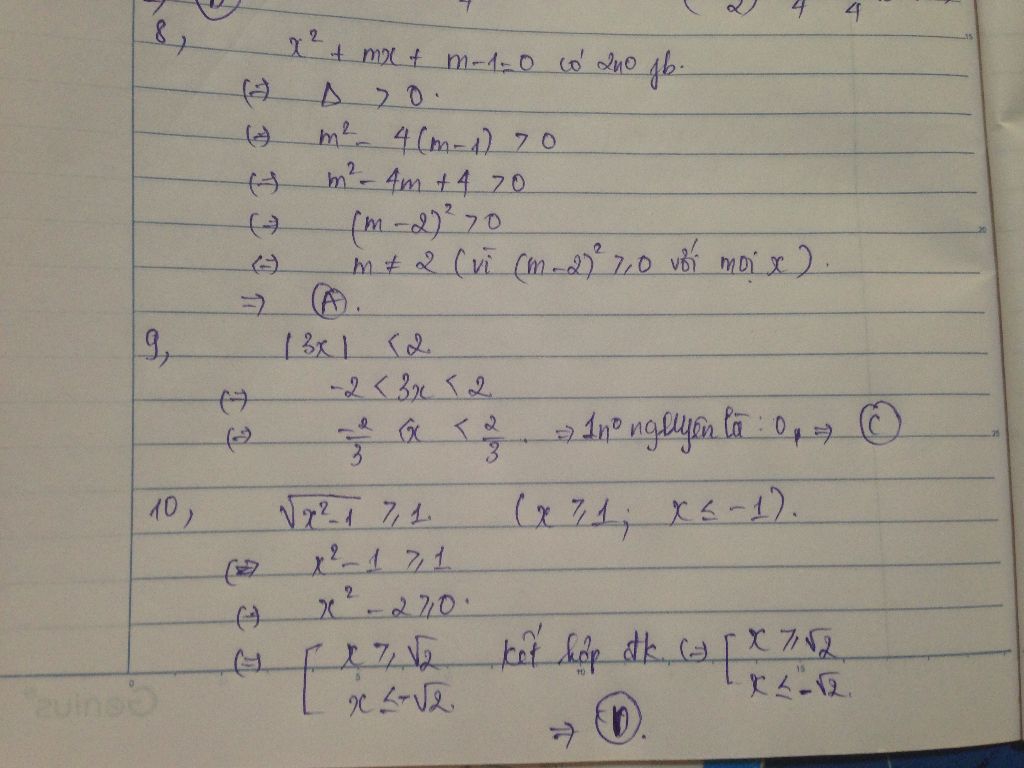 8, x² + mx + m-1=0 có 2n0 pb.
(=) Δ > 0.
(=) m² - 4(m-1) > 0
(=) m² - 4m + 4 > 0
(=) (m-2)² > 0
(=) m ≠ 2 (vì (m-2)² ≥ 0 với mọi x).
=> A.
9, |3x| < 2
(=) -2 < 3x < 2
(=) -2/3 < x < 2/3. => 1n0 nguyên là : 0, => C
10, √x²-1 ≥ 1. (x ≥ 1; x ≤ -1).
(=) x² - 1 ≥ 1
(=) x² - 2 ≥ 0.
(=) [ x ≥ √2 kết hợp đk (=) [ x ≥ √2
x ≤ -√2. x ≤ -√2.
=> D.
Genius